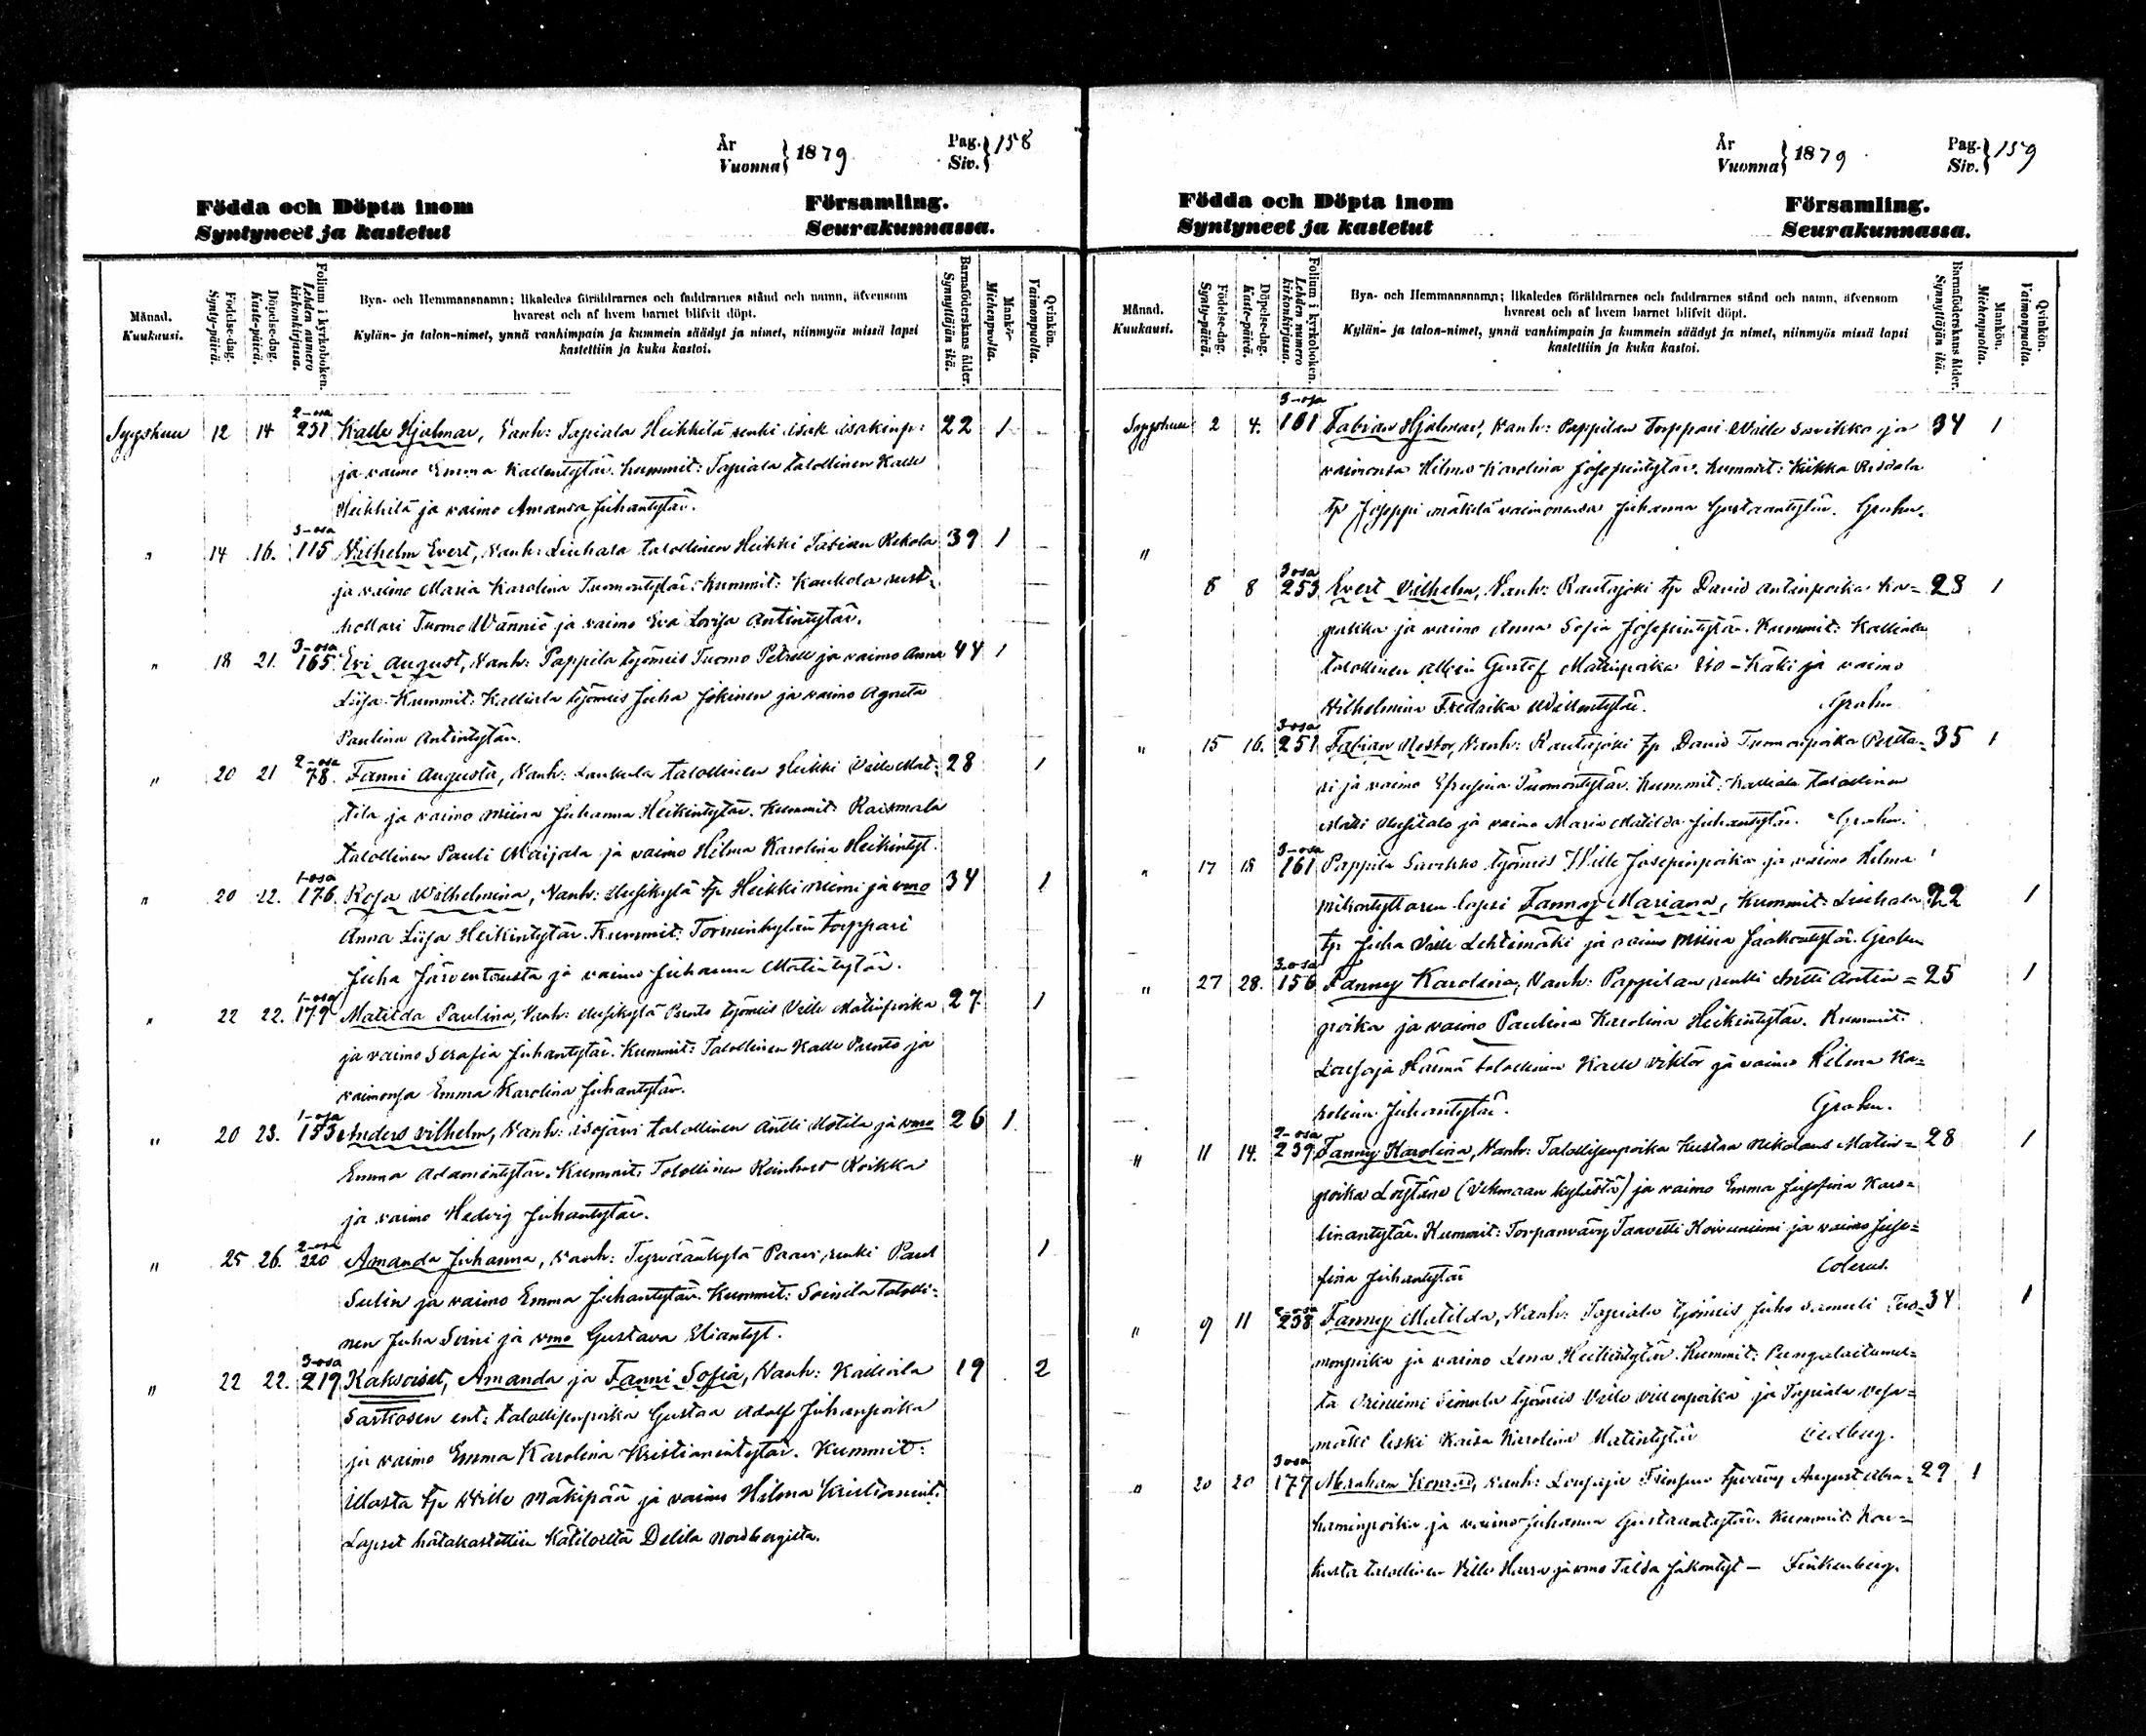 År
Vuonna } 1879.
Pag.
Siv. } 158
Födda och Döpta inom Församling.
Syntyneet ja kastetut Seurakunnassa.
Månad.
Kuukausi.
Födelse-dag.
Synty-päivä.
Döpelse-dag.
Kaste-päivä.
Folium i kyrkoboken.
Lehden numero
kirkonkirjassa.
Bya- och Hemmansnamn; likaledes föräldrarnes och faddrarnes stånd och namn, äfvensom
hvarest och af hvem barnet blifvit döpt.
Kylän- ja talon-nimet, ynnä vanhimpain ja kummein säädyt ja nimet, niinmyös missä lapsi
kastettiin ja kuka kastoi.
Barnaföderskans ålder.
Synnyttäjän ikä.
Mankön.
Miehenpuolta.
Qvinkön.
Vaimonpuolta.
2-osa
Syyskuu 12 14 251 Kalle Hjalmar, Vanh: Tapiala Heikkilä renki Isak Isakinp: 22 1
ja vaimo Emma Kallentytär. Kummit: Tapiala talollinen Kalle
Heikkilä ja vaimo Amanda Juhantytär.
3-osa
" 14 16. 115 Vilhelm Evert, Vanh: Liuhala talollinen Heikki Fabian Rekola 39 1
ja vaimo Maria Karolina Tuomontytär. Kummit: Kaukola rust-
hollari Tuomo Wänniö ja vaimo Eva Lovisa Antintytär.
3-osa
" 18 21. 165. Evi August, Vanh: Pappila työmies Tuomo Petrell ja vaimo Anna 44 1
Liisa. Kummit: Kalliala työmies Juha Jokinen ja vaimo Agneta
Paulina Antintytär.
2-osa
" 20 21 78. Fanni Augusta, Vanh: Laukula talollinen Heikki Ville Mat- 28 1
tila ja vaimo Miina Juhanna Heikintytär. Kummit: Raismala
talollinen Pauli Maijala ja vaimo Hilma Karolina Heikintyt.
1-osa
" 20 22. 176. Rosa Wilhelmina, Vanh: Uusikylä tp Heikki Niemi ja vmo 34 1
Anna Liisa Heikintytär. Kummit: Torminkylän torppari
Juha Järventausta ja vaimo Juhanna Matintytär.
1-osa
" 22 22. 179 Matilda Paulina, Vanh: Uusikylä Punto työmies Ville Matinpoika 27 1
ja vaimo Serafia Juhantytär. Kummit: Talollinen Kalle Punto ja
vaimonsa Emma Karolina Juhantytär.
1-osa
" 20 23. 153 Anders Vilhelm, Vanh: Isojärvi talollinen Antti Uotila ja vmo 26 1
Emma Adamintytär. Kummit: Talollinen Reinhard Koikka
ja vaimo Hedvig Juhantytär.
2-osa
" 25 26. 220 Amanda Juhanna, Vanh: Tyrväänkylä Paavi renki Paul 1
Sulin ja vaimo Emma Juhantytär. Kummit: Soinila talolli-
nen Juha Soini ja vmo Gustava Eliantyt.
3-osa
" 22 22. 219 Kaksoiset, Amanda ja Fanni Sofia, Vanh: Kalliala 19 2
ent: talollisenpoika Gustaa Adolf Juhanpoika
ja vaimo Emma Karolina Kristianintytär. Kummit:
Illasta tp Wille Mäkipää ja vaimo Hilma Kristianint.
Lapset hätäkastettiin Kätilöltä Delila Nordbergilta.
År
Vuonna } 1879
Pag.
Siv. } 159
Födda och Döpta inom Församling.
Syntyneet ja kastetut Seurakunnassa.
Månad.
Kuukausi.
Födelse-dag.
Synty-päivä.
Döpelse-dag.
Kaste-päivä.
Folium i kyrkoboken.
Lehden numero
kirkonkirjassa.
Bya- och Hemmansnamn; likaledes föräldrarnes och faddrarnes stånd och namn, äfvensom
hvarest och af hvem barnet blifvit döpt.
Kylän- ja talon-nimet, ynnä vanhimpain ja kummein säädyt ja nimet, niinmyös missä lapsi
kastettiin ja kuka kastoi.
Barnaföderskans ålder.
Synnyttäjän ikä.
Mankön.
Miehenpuolta.
Qvinkön.
Vaimonpuolta.
3-osa
Syyskuu 2 4. 161 Fabian Hjalmar, Vanh: Pappilan torppari Wille Savikko ja 34 1
vaimonsa Hilma Karolina Josepintytär. Kummit: Kiikka
tp Joseppi Mäkelä vaimonensa Juhanna Gustaantytär. Grahn.
"
3 osa
8 8 253 Evert Vilhelm, Vanh: Rautajoki tp David Antinpoika 28 1
ja vaimo Anna Sofia Josepintytär. Kummit: Kalliala
talollinen Albin Gustaf Matinpoika Iso-Käki ja vaimo
Wilhelmina Fredrika Willentytär. Grahn
3-osa
" 15 16. 251 Fabian Nestor, Vanh: Rautajoki tp David Tuomonpoika Pertta- 35 1
ri ja vaimo Efrusina Tuomontytär. Kummit: Kalliala talollinen
Matti Uusitalo ja vaimo Maria Matilda Juhantytär. Grahn.
3-osa
" 17 18 161 Pappila Savikko työmies Wille Josepinpoika ja vaimo Hilma
lapsi Fanny Mariana, Kummit: Liuhala 22 1
tp Juha Ville Lehtimäki ja vaimo Miina Jaakontytär. Grahn
3-osa
" 27 28. 156 Fanny Karolina, Vanh: Pappilan renki Antti Antin- 25 1
poika ja vaimo Paulina Karolina Heikintytär. Kummit:
Lousaja Härmä talollinen Kalle Viktor ja vaimo Hilma Ka-
rolina Juhantytär. Grahn.
2-osa
" 11 14. 239 Fanny Karolina, Vanh: Talollisenpoika Kustaa Nikolaus Matin- 28 1
poika Löytäne (Vehmaan kylästä) ja vaimo Emma Josefina Karo-
linantytär. Kummit: Torpanvävy Taavetti Koivuniemi ja vaimo Jose-
fina Juhantytär Colerus.
2-osa
" 9 11 238 Fanny Matilda, Vanh: Tapiala työmies Juho Samuli Tuo- 34 1
monpoika ja vaimo Lena Heikintytär. Kummit: Pungalaitumel-
ta Oriniemi Simula työmies Ville Villenpoika ja Tapiala Vesa-
mäki leski Kaisa Karolina Matintytär
3 osa
" 20 20 177 Abraham Konrad, Vanh: Lousaja tpvävy August Abra- 29 1
haminpoika ja vaimo Juhanna Gustaantytär. Kummit: Kau-
kolta talollinen Ville Harra ja vmo Tilda Jakontyt - Finkenberg.